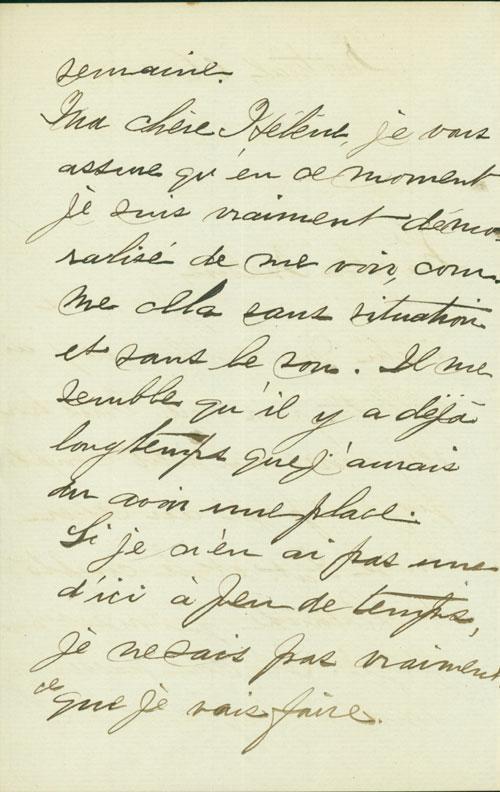 semaine.
Ma chère Hélène, je vous
assure qu'en ce moment
je suis vraiment démo-
ralisé de me voir, com-
me cela sans situation
et sans le sou. Il me
semble qu'il y a déjà
longtemps que j'aurais
du avoir une place.
Si je n'en ai pas une
d'ici à peu de temps,
je ne sais pas vraiment
ce que je vais faire.